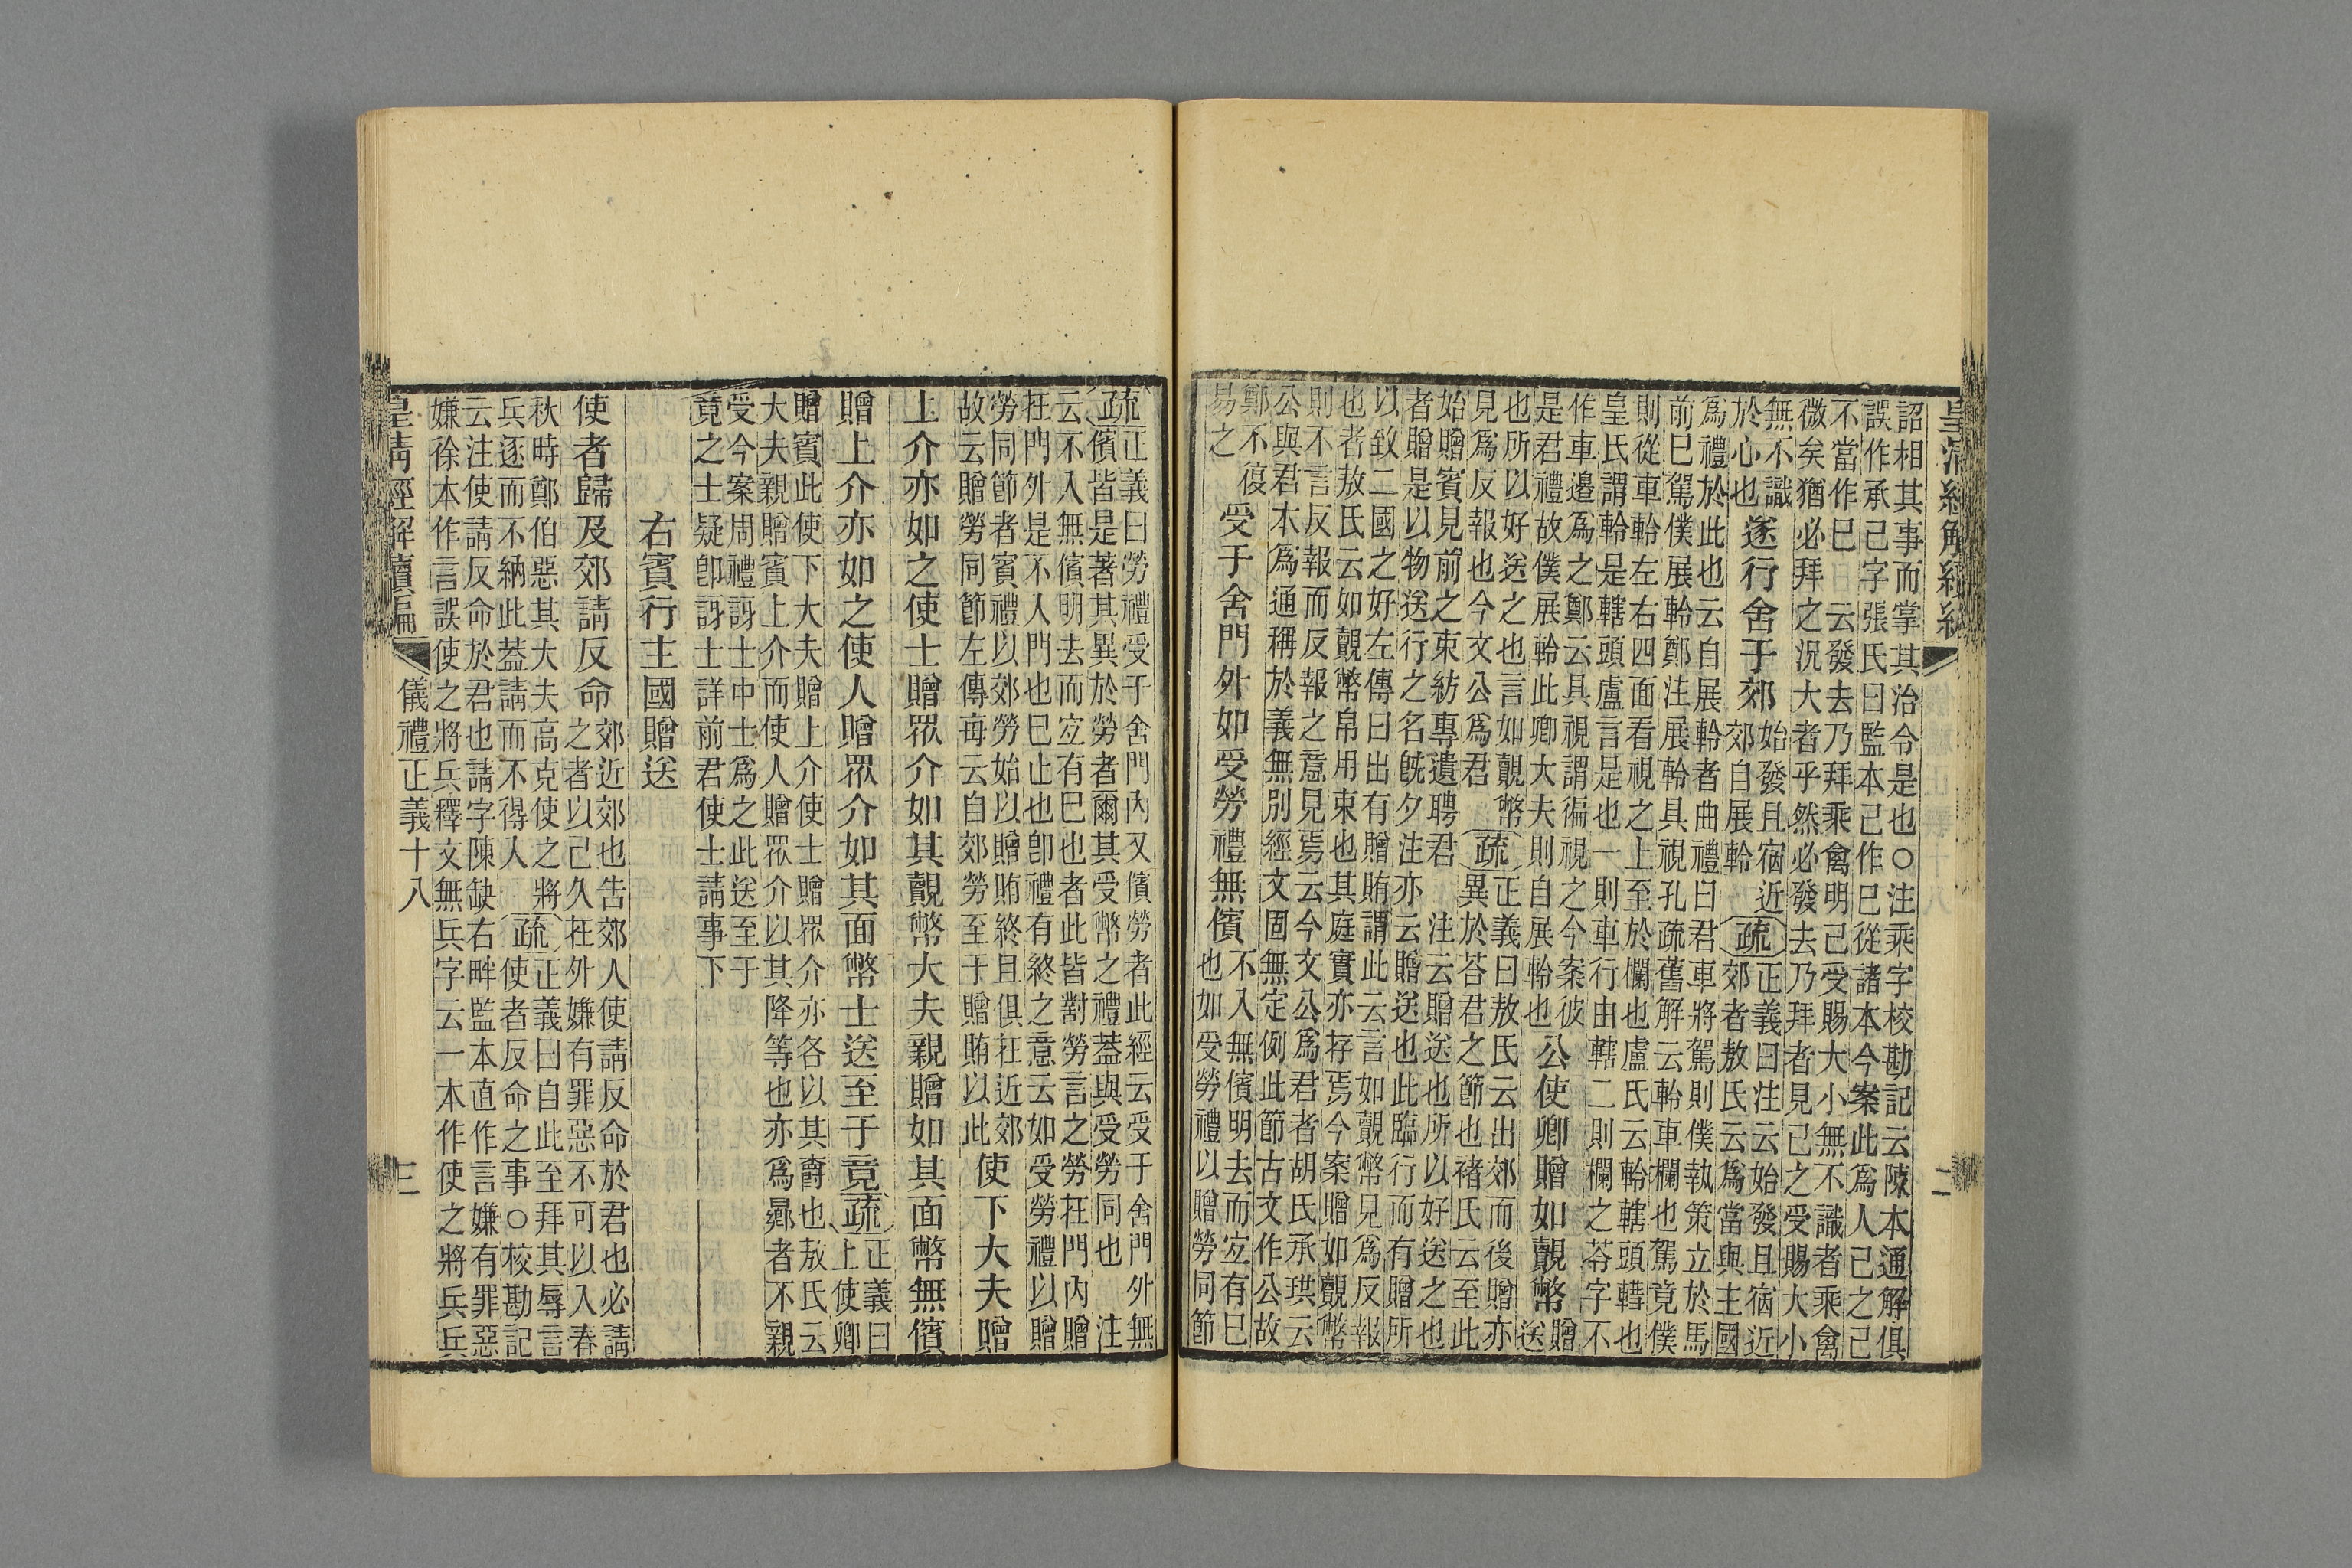 皇清經解續編
二
詔相其事而掌其治令是也○注乘字校勘記云陳本通解俱
誤作承己字張氏曰監本己作巳從諸本今案此爲人已之己
不當作巳 云發去乃拜乘禽明己受賜大小無不識者乘禽
微矣猶必拜之況大者乎然必發去乃拜者見已之受賜大小
無不識
於心也
遂行舍于郊
始發且宿近
郊自展軨
疏
正義曰注云始發且宿近
郊者敖氏云爲當與主國
爲禮於此也云自展軨者曲禮曰君車將駕則僕執策立於馬
前巳駕僕展軨鄭注展軨具視孔疏舊解云軨車欄也駕竟僕
則從車軨左右四面看視之上至於欄也盧氏云軨轄頭轊也
皇氏謂軨是轄頭盧言是也一則車行由轄二則欄之苓字不
作車邉爲之鄭云具視謂徧視之今案彼
是君禮故僕展軨此卿大夫則自展軨也
公使卿贈如覿幣
贈
送
也所以好送之也言如覿幣
見爲反報也今文公爲君
疏
正義曰敖氏云出郊而後贈亦
異於荅君之節也褚氏云至此
始贈賓見前之束紡專遺聘君 注云贈送也所以好送之也
者贈是以物送行之名旣夕注亦云贈送也此臨行而有贈所
以致二國之好左傳曰出有贈賄謂此云言如覿幣見爲反報
也者敖氏云如覿幣帛用束也其庭實亦存焉今案贈如覿幣
則不言反報而反報之意見焉云今文公爲君者胡氏承珙云
公與君本爲通稱於義無別經文固無定例此節古文作公故
鄭不復
易之
受于舍門外如受勞禮無儐
不入無儐明去而宜有巳
也如受勞禮以贈勞同節
疏
正義曰勞禮受于舍門內又儐勞者此經云受于舍門外無
儐皆是著其異於勞者爾其受幣之禮蓋與受勞同也 注
云不入無儐明去而宜有巳也者此皆對勞言之勞在門內贈
在門外是不入門也巳止也卽禮有終之意云如受勞禮以贈
勞同節者賓禮以郊勞始以贈賄終且俱在近郊
故云贈勞同節左傳每云自郊勞至于贈賄以此
使下大夫贈
上介亦如之使士贈眾介如其覿幣大夫親贈如其面幣無儐
贈上介亦如之使人贈眾介如其面幣士送至于竟
疏
正義曰
上使卿
贈賓此使下大夫贈上介使士贈眾介亦各以其爵也敖氏云
大夫親贈賓上介而使人贈眾介以其降等也亦爲曏者不親
受今案周禮訝士中士爲之此送至于
竟之士疑卽訝士詳前君使士請事下
右賓行主國贈送
使者歸及郊請反命
郊近郊也告郊人使請反命於君也必請
之者以己久在外嫌有罪惡不可以入春
秋時鄭伯惡其大夫高克使之將
兵逐而不納此蓋請而不得入
疏
正義曰自此至拜其辱言
使者反命之事○校勘記
云注使請反命於君也請字陳缺右畔監本直作言嫌有罪惡
嫌徐本作言誤使之將兵釋文無兵字云一本作使之將兵兵
皇清經解續編
儀禮正義十八
三